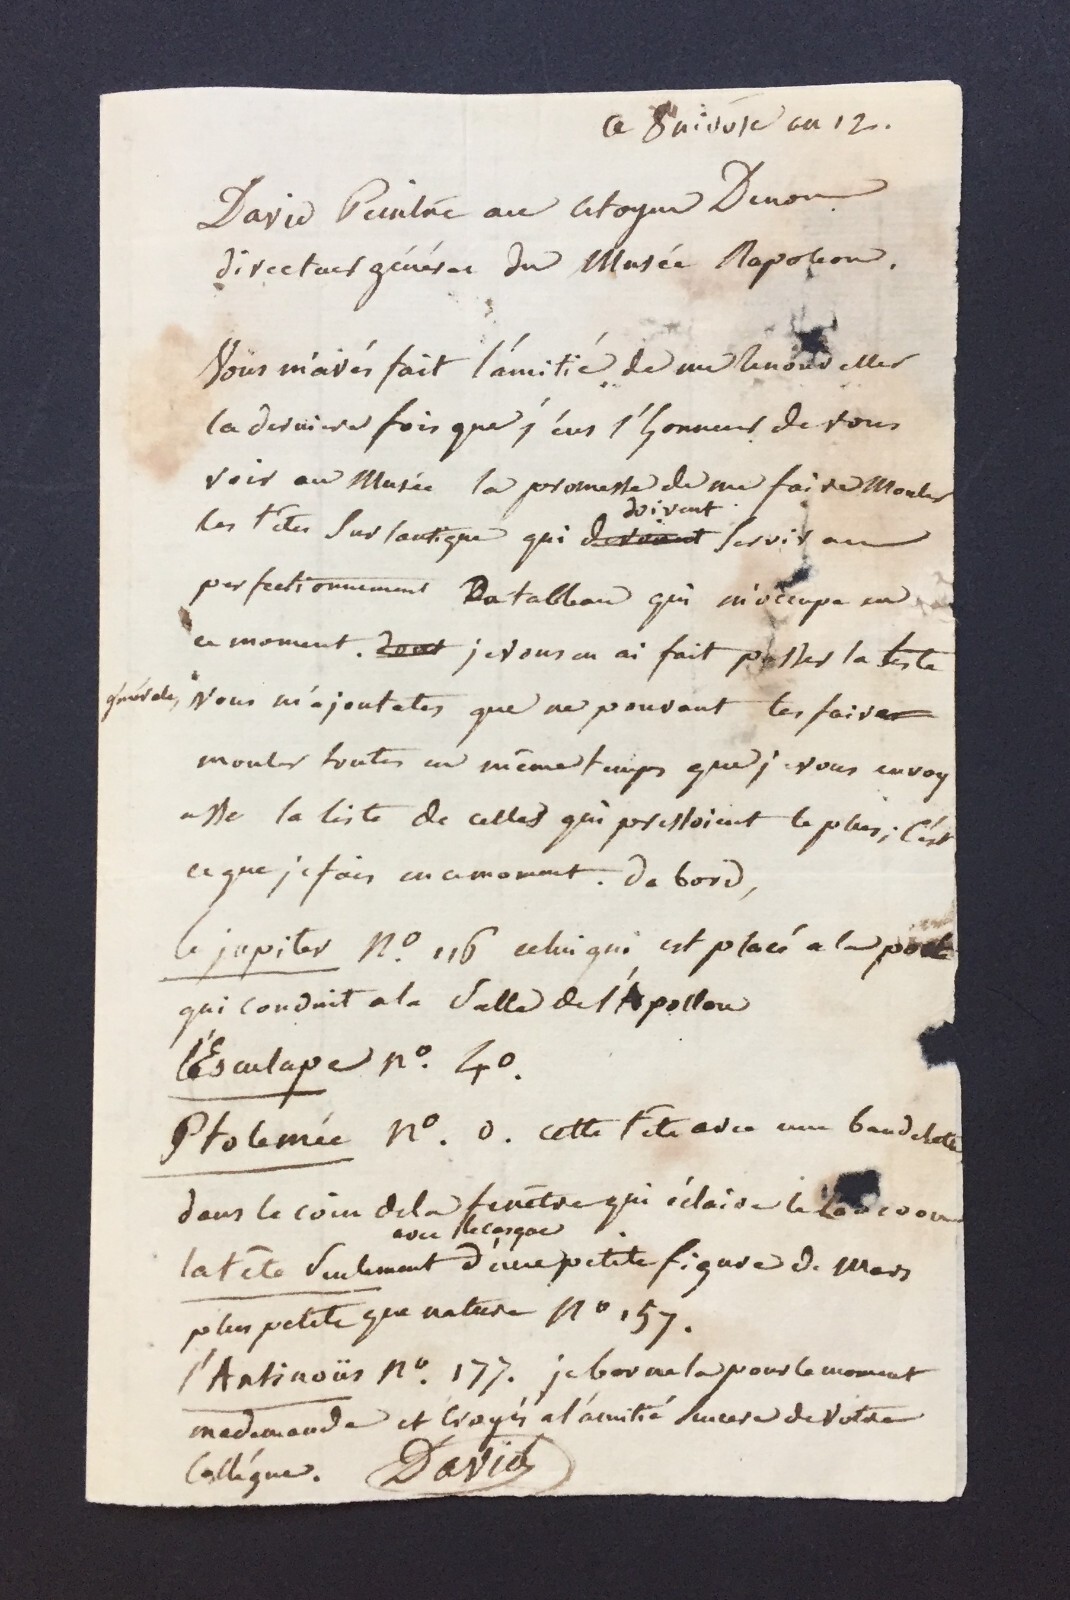 ce 8 nivôse an 12.
David Peintre au citoyen Denon
directeur général du Musée Napoleon.
Vous m'avés fait l'amitié de me renouveller
la derniere fois que j'eus l'honneur de vous
voir au Musée la promesse de me faire Mouler
les têtes sur l'antique qui devoient doivent servir au
perfectionnement Du tableau qui m'occupe en
ce moment. dont je vous en ai fait passer la liste
générale, Vous m'ajoutates que ne pouvant les faire
mouler toutes en même temps que je vous envoy
asse la liste de celles qui pressoient le plus; C'est
ce que je fais en ce moment. da bord,
le jupiter N.º 116 celui qui est placé a la porte
qui conduit a la Salle de l'Apollon
l'Esculape nº. 40.
Ptolemée Nº. 0. cette tête avec une bandelette
dans le coin de la fenêtre qui éclaire le Laocoon
la tête seulement avec le casque d'une petite figure de Mars
plus petite que nature Nº 157.
l'Antinoüs Nº. 177. je borne la pour le moment
ma demande et croyés a l'amitié sincere de votre
Collégue. David